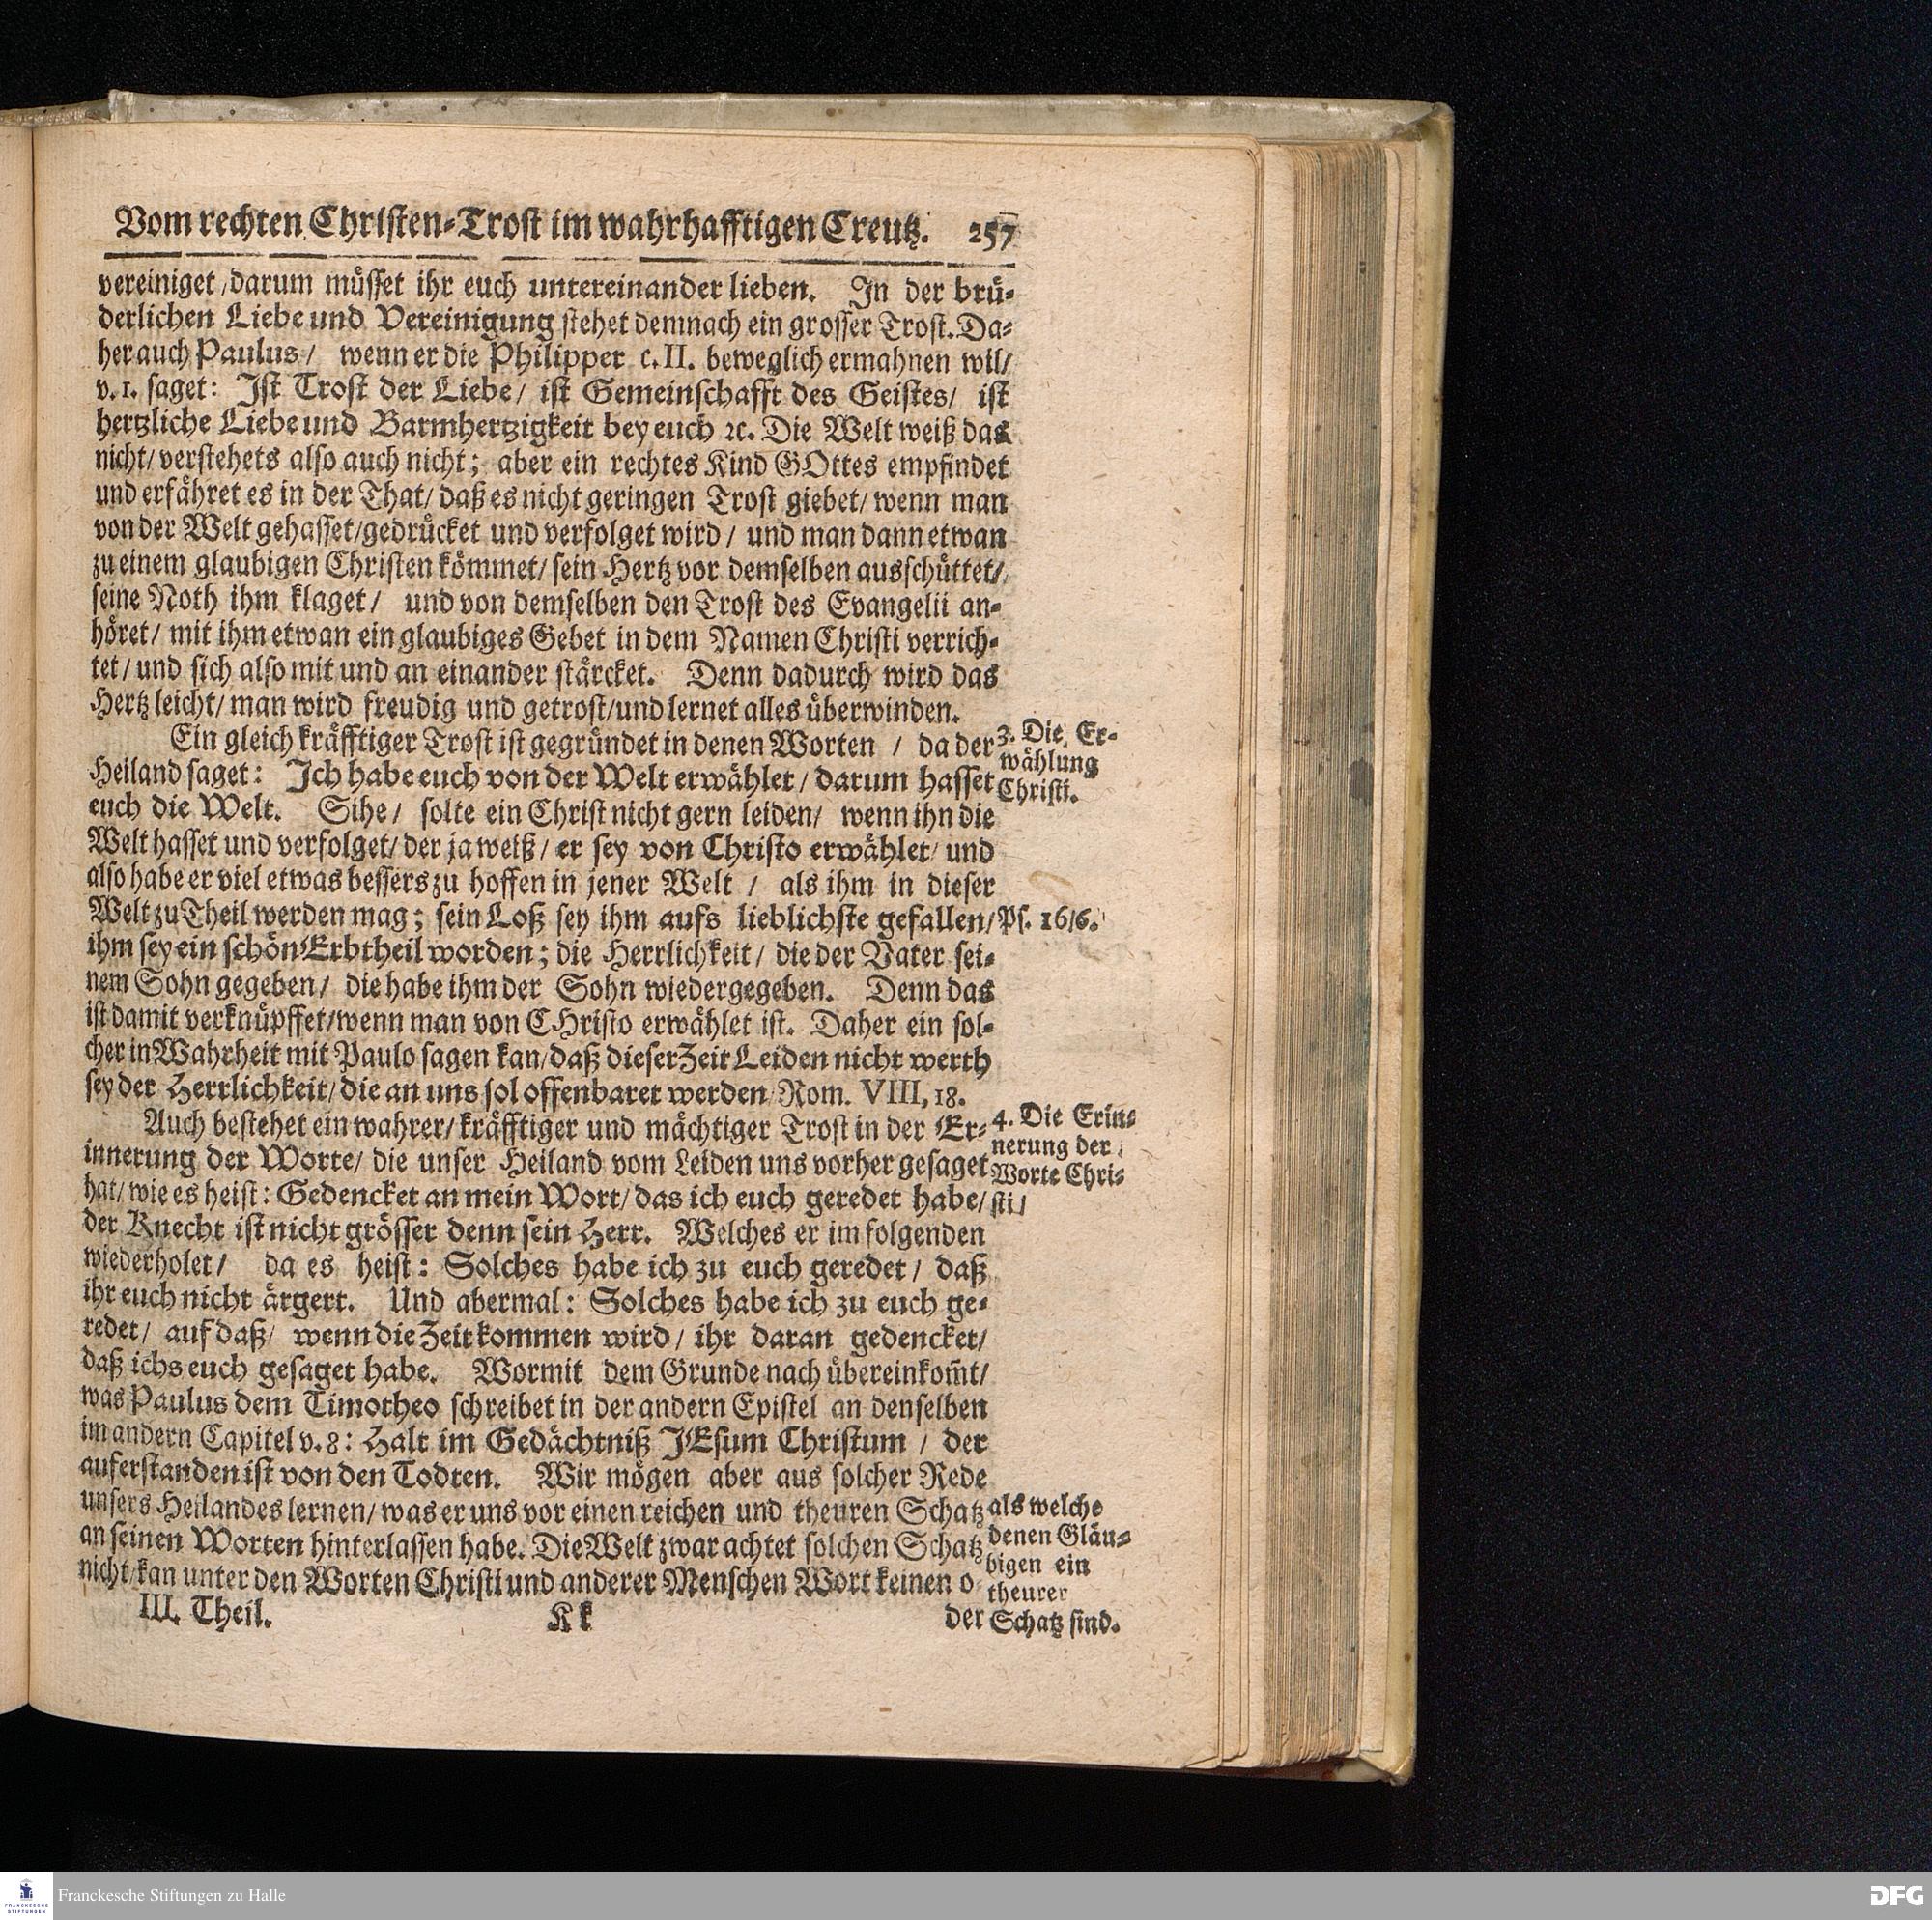 Vom rechten Christen-Trost im wahrhafftigen Creutz. 257
vereiniget/darum müsset ihr euch untereinander lieben. In der brü-
derlichen Liebe und Vereinigung stehet demnach ein grosser Trost. Da-
her auch Paulus/ wenn er die Philipper c. II. beweglich ermahnen wil/
v. 1. saget: Ist Trost der Liebe/ ist Gemeinschafft des Geistes/ ist
hertzliche Liebe und Barmhertzigkeit bey euch ꝛc. Die Welt weiß das
nicht/verstehets also auch nicht; aber ein rechtes Kind GOttes empfindet
und erfähret es in der That/ daß es nicht geringen Trost giebet/ wenn man
von der Welt gehasset/gedrücket und verfolget wird/ und man dann etwan
zu einem glaubigen Christen kömmet/ sein Hertz vor demselben ausschüttet/
seine Noth ihm klaget/ und von demselben den Trost des Evangelii an-
höret/ mit ihm etwan ein glaubiges Gebet in dem Namen Christi verrich-
tet/ und sich also mit und an einander stärcket. Denn dadurch wird das
Hertz leicht/ man wird freudig und getrost/und lernet alles überwinden.
Ein gleich kräfftiger Trost ist gegründet in denen Worten / da der
Heiland saget: Ich habe euch von der Welt erwählet/ darum hasset
euch die Welt. Sihe/ solte ein Christ nicht gern leiden/ wenn ihn die
Welt hasset und verfolget/ der ja weiß/ er sey von Christo erwählet/ und
also habe er viel etwas bessers zu hoffen in jener Welt / als ihm in dieser
Welt zu Theil werden mag; sein Loß sey ihm aufs lieblichste gefallen/
ihm sey ein schön Erbtheil worden; die Herrlichkeit/ die der Vater sei-
nem Sohn gegeben/ die habe ihm der Sohn wiedergegeben. Denn das
ist damit verknüpffet/wenn man von CHristo erwählet ist. Daher ein sol-
cher in Wahrheit mit Paulo sagen kan/daß dieser Zeit Leiden nicht werth
sey der Herrlichkeit/ die an uns sol offenbaret werden/ Rom. VIII, 18.
Auch bestehet ein wahrer/ kräfftiger und mächtiger Trost in der Er-
innerung der Worte/ die unser Heiland vom Leiden uns vorher gesaget
hat/ wie es heist: Gedencket an mein Wort/ das ich euch geredet habe/
der Knecht ist nicht grösser denn sein Herr. Welches er im folgenden
wiederholet/ da es heist: Solches habe ich zu euch geredet/ daß
ihr euch nicht ärgert. Und abermal: Solches habe ich zu euch ge-
redet/ auf daß/ wenn die Zeit kommen wird/ ihr daran gedencket/
daß ichs euch gesaget habe. Wormit dem Grunde nach übereinkom̃t/
was Paulus dem Timotheo schreibet in der andern Epistel an denselben
im andern Capitel v. 8: Halt im Gedächtniß JEsum Christum / der
auferstanden ist von den Todten. Wir mögen aber aus solcher Rede
unsers Heilandes lernen/ was er uns vor einen reichen und theuren Schatz
an seinen Worten hinterlassen habe. Die Welt zwar achtet solchen Schatz
nicht/ kan unter den Worten Christi und anderer Menschen Wort keinen o
III. Theil. Kk der
3. Die Er-
wählung
Christi.
Ps. 16/6.
4. Die Erin-
nerung der
Worte Chri-
sti/
als welche
denen Gläu-
bigen ein
theurer
Schatz sind.
Franckesche Stiftungen zu Halle
FRANCKESCHE
STIFTUNGEN
DFG